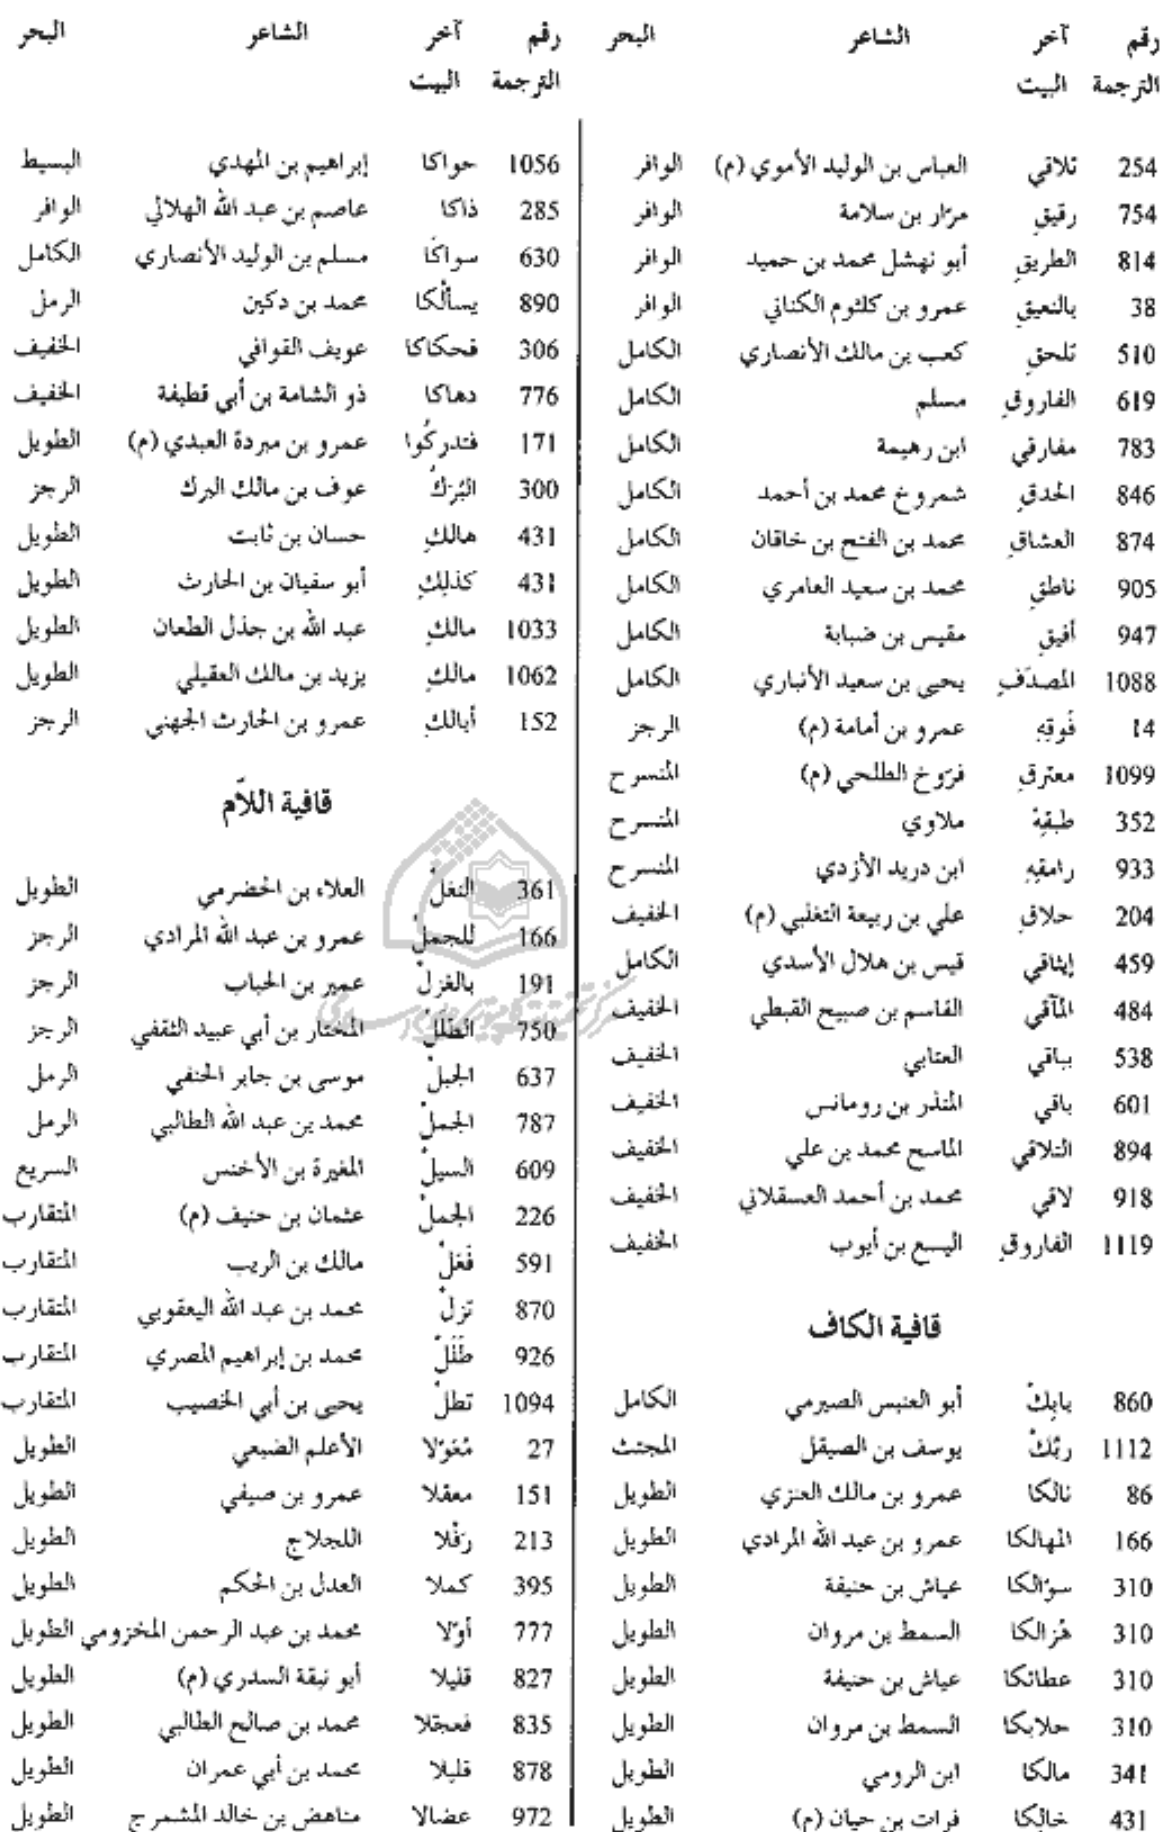 رقم آخر الشاعر البحر
الترجمة البيت
254 تلاقي العباس بن الوليد الأموي (م) الوافر
754 رقيقِ مرّار بن سلامة الوافر
814 الطريقِ أبو نهشل محمد بن حميد الوافر
38 بالنعيقِ عمرو بن كلثوم الكناني الوافر
510 تلحقِ كعب بن مالك الأنصاري الكامل
619 الفاروقِ مسلم الكامل
783 مفارقي ابن رهيمة الكامل
846 الحدقِ شمروخ محمد بن أحمد الكامل
874 العشاقِ محمد بن الفتح بن خاقان الكامل
905 ناطقِ محمد بن سعيد العامري الكامل
947 أفيقِ مقيس بن ضبابة الكامل
1088 المصدَفِ يحيى بن سعيد الأنباري الكامل
14 فُوقِهِ عمرو بن أمامة (م) الرجز
1099 معترقِ فرّوخ الطلحي (م) المنسرح
352 طبقِهْ ملاوي المنسرح
933 رامقِهِ ابن دريد الأزدي المنسرح
204 حلاقِ علي بن ربيعة التغلبي (م) الخفيف
459 إيثاقي قيس بن هلال الأسدي الكامل
484 المآقي القاسم بن صبيح القبطي الخفيف
538 بباقي العتابي الخفيف
601 باقي المنذر بن رومانس الخفيف
894 التلاقي الماسح محمد بن علي الخفيف
918 لاقي محمد بن أحمد العسقلاني الخفيف
1119 الفاروقِ اليسع بن أيوب الخفيف
قافية الكاف
860 بابكْ أبو العنبس الصيرمي الكامل
1112 ربّكْ يوسف بن الصيقل المجتث
86 نالكا عمرو بن مالك العنزي الطويل
166 المهالكا عمرو بن عبد الله المرادي الطويل
310 سؤالكا عياش بن حنيفة الطويل
310 هُزالكا السمط بن مروان الطويل
310 عطائكا عياش بن حنيفة الطويل
310 حلابكا السمط بن مروان الطويل
341 مالكا ابن الرومي الطويل
431 خالِكا فرات بن حيان (م) الطويل
رقم آخر الشاعر البحر
الترجمة البيت
1056 حواكا إبراهيم بن المهدي البسيط
285 ذاكا عاصم بن عبد الله الهلالي الوافر
630 سواكَا مسلم بن الوليد الأنصاري الكامل
890 يسألُكا محمد بن دكين الرمل
306 فحكاكا عويف القوافي الخفيف
776 دهاكا ذو الشامة بن أبي قطيفة الخفيف
171 فتدركُوا عمرو بن مبردة العبدي (م) الطويل
300 البُرَكُ عوف بن مالك البرك الرجز
431 هالكِ حسان بن ثابت الطويل
431 كذلِكِ أبو سفيان بن الحارث الطويل
1033 مالكِ عبد الله بن جذل الطعان الطويل
1062 مالكِ يزيد بن مالك العقيلي الطويل
152 أبالكِ عمرو بن الحارث الجهني الرجز
قافية اللاّم
361 النغلْ العلاء بن الحضرمي الطويل
166 للجملْ عمرو بن عبد الله المرادي الرجز
191 بالغزلْ عمير بن الحباب الرجز
750 الطللْ المختار بن أبي عبيد الثقفي الرجز
637 الجبلْ موسى بن جابر الحنفي الرمل
787 الجملْ محمد بن عبد الله الطالبي الرمل
609 السيلْ المغيرة بن الأخنس السريع
226 الجملْ عثمان بن حنيف (م) المتقارب
591 فَعَلْ مالك بن الريب المتقارب
870 تزلْ محمد بن عبد الله اليعقوبي المتقارب
926 طَفَلْ محمد بن إبراهيم المصري المتقارب
1094 تطلْ يحيى بن أبي الخصيب المتقارب
27 مُعَوّلا الأعلم الضبعي الطويل
151 معقلا عمرو بن صيفي الطويل
213 رَفْلا اللجلاج الطويل
395 كملا العدل بن الحكم الطويل
777 أوّلا محمد بن عبد الرحمن المخزومي الطويل
827 قليلا أبو نبقة السدري (م) الطويل
835 فعجّلا محمد بن صالح الطالبي الطويل
878 قليلا محمد بن أبي عمران الطويل
972 عضالا مناهض بن خالد المشمرج الطويل